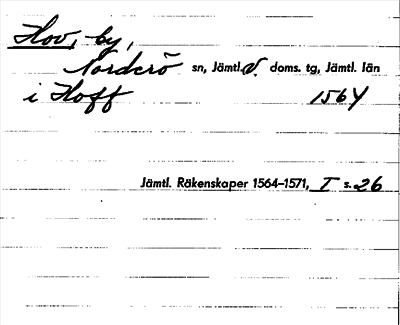 Hov, by,
Norderö sn, Jämtl. v. doms. tg, Jämtl. län
i Hoff 1564
Jämtl. Räkenskaper 1564–1571, I s. 26